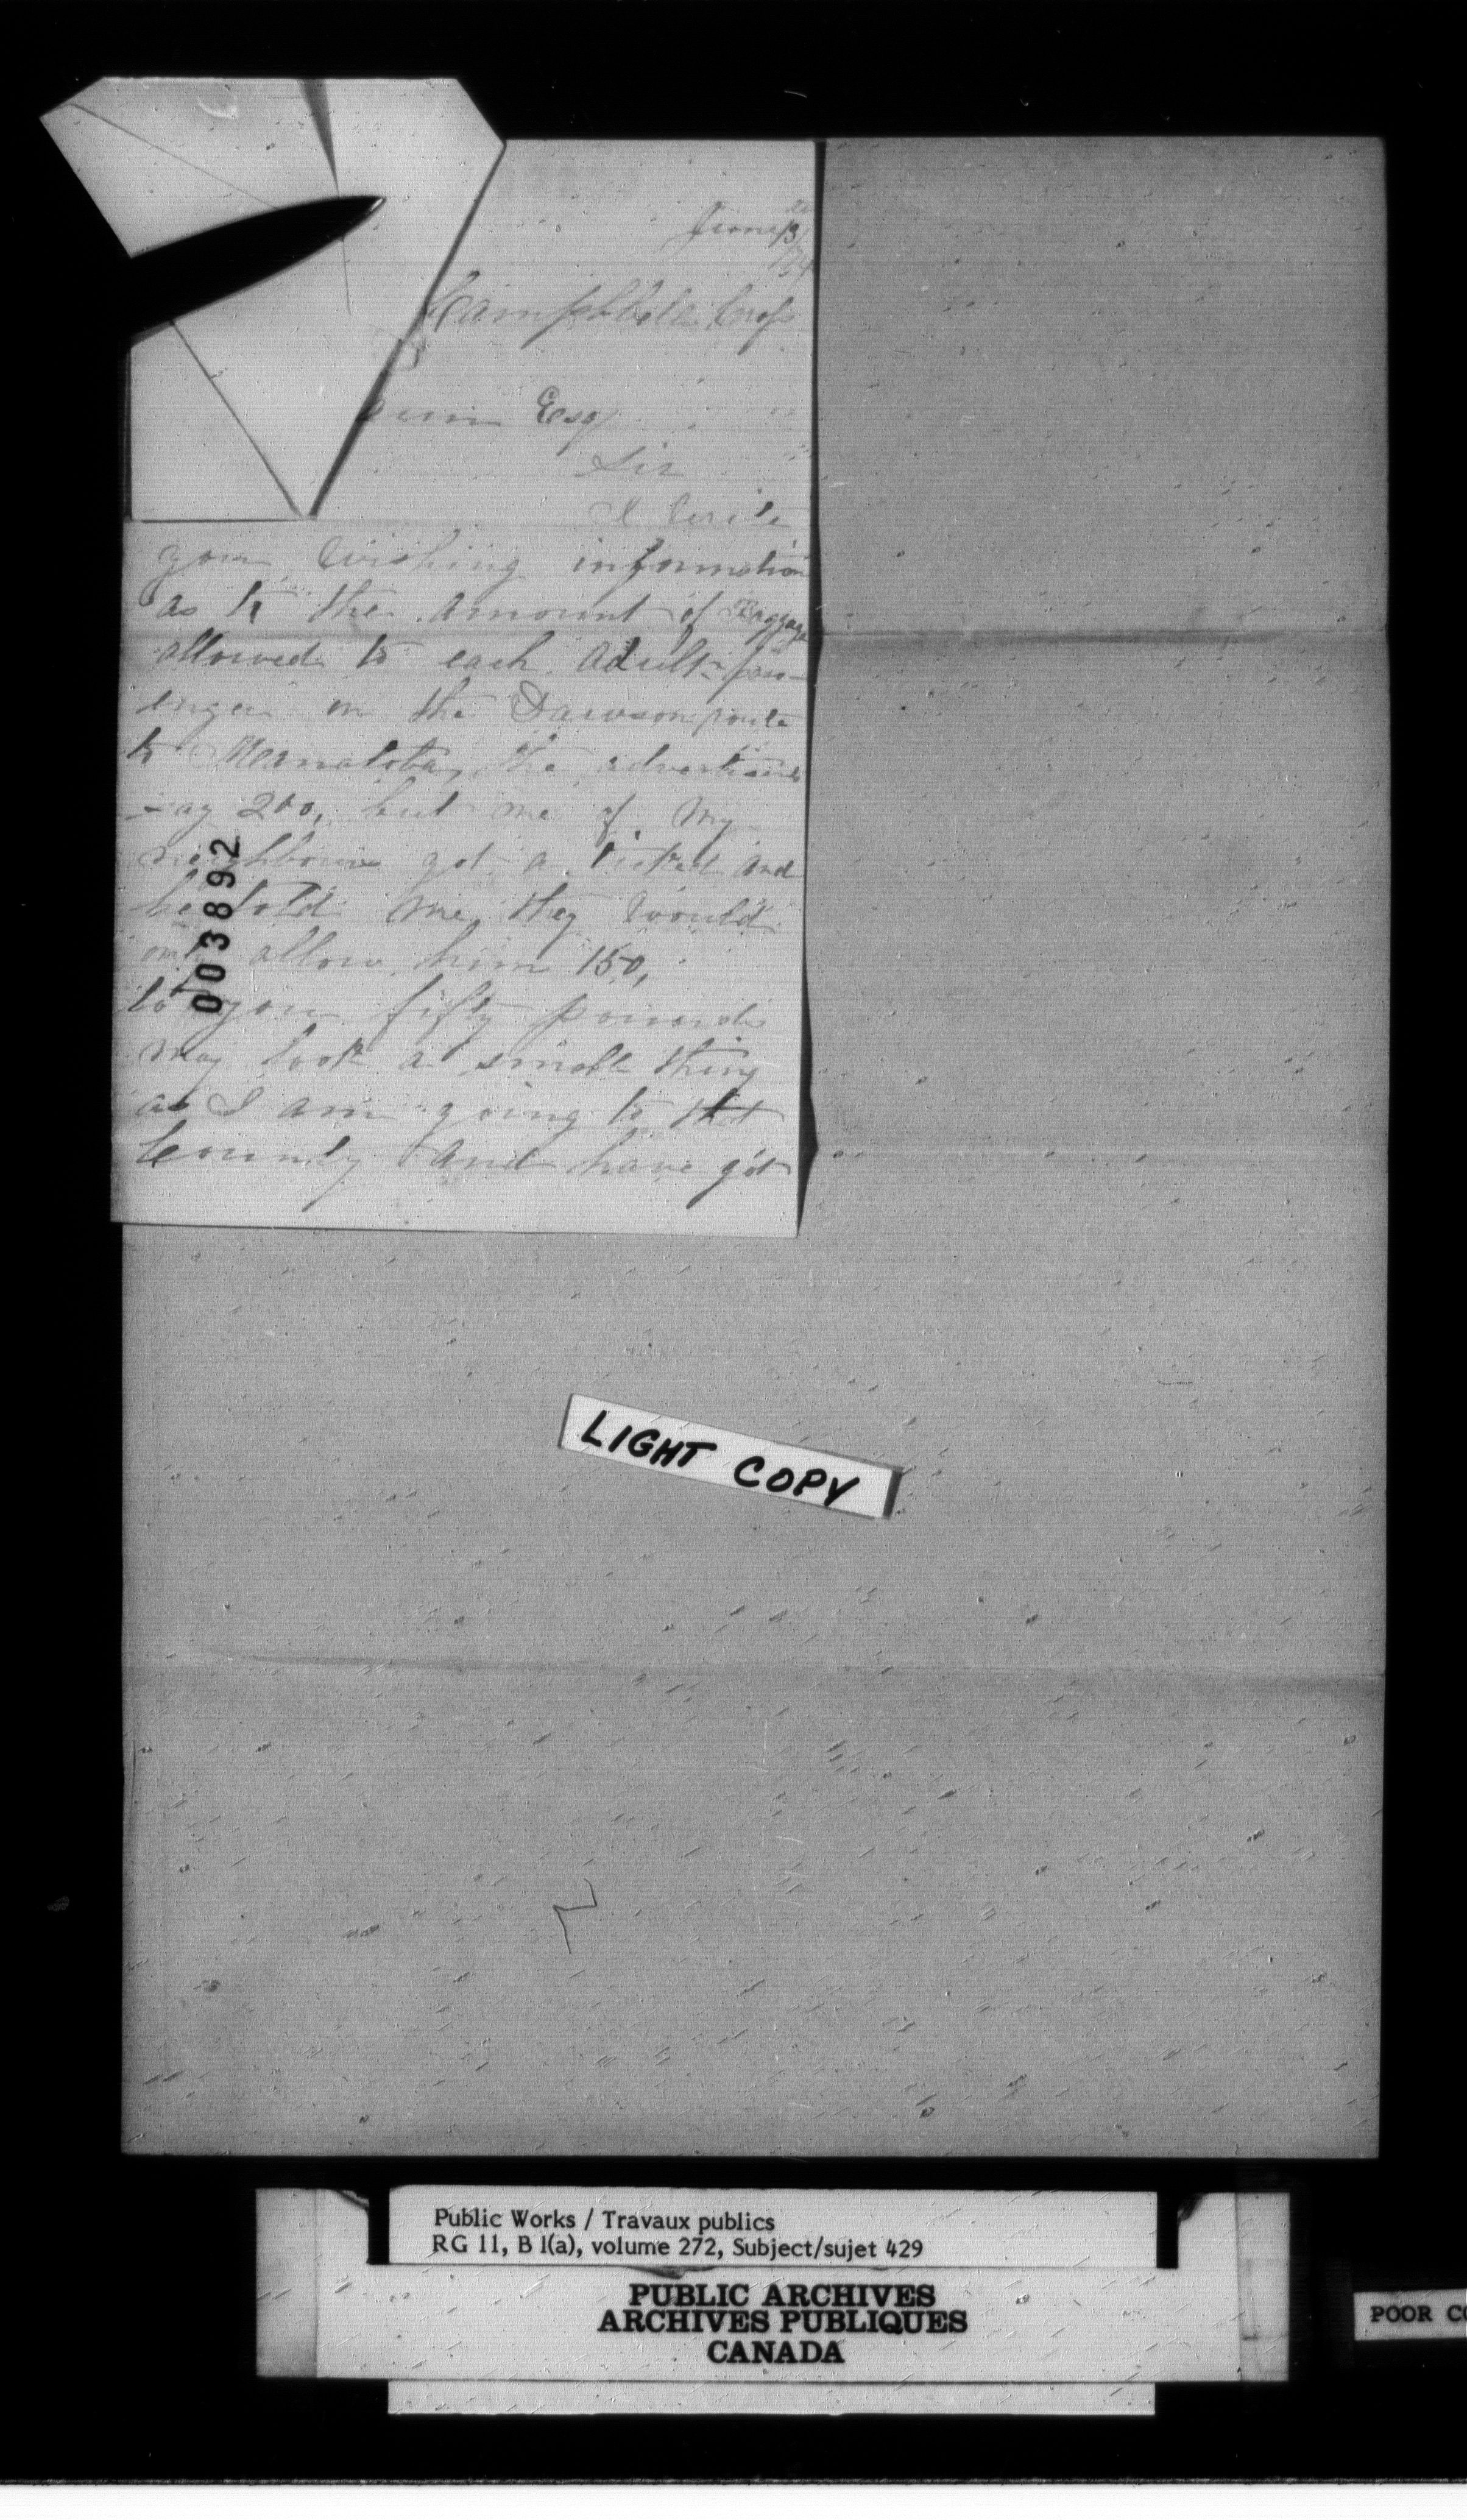 June 13
Campbells Cross
Esq
Sir
I write
you wishing information
as to the amount of Baggage
allowed to each adult pas-
enger on the Dawson route
to Meanatoba, the advertisments
say 200, but one of my
neighbours got a ticket and
he told me they would
ont allow him 150,
to you fifty pounds
may look a small thing
as I am going to that
County and have got
003892
LIGHT COPY
Public Works / Travaux publics
RG 11, B 1(a), volume 272, Subject/sujet 429
PUBLIC ARCHIVES
ARCHIVES PUBLIQUES
CANADA
POOR CO